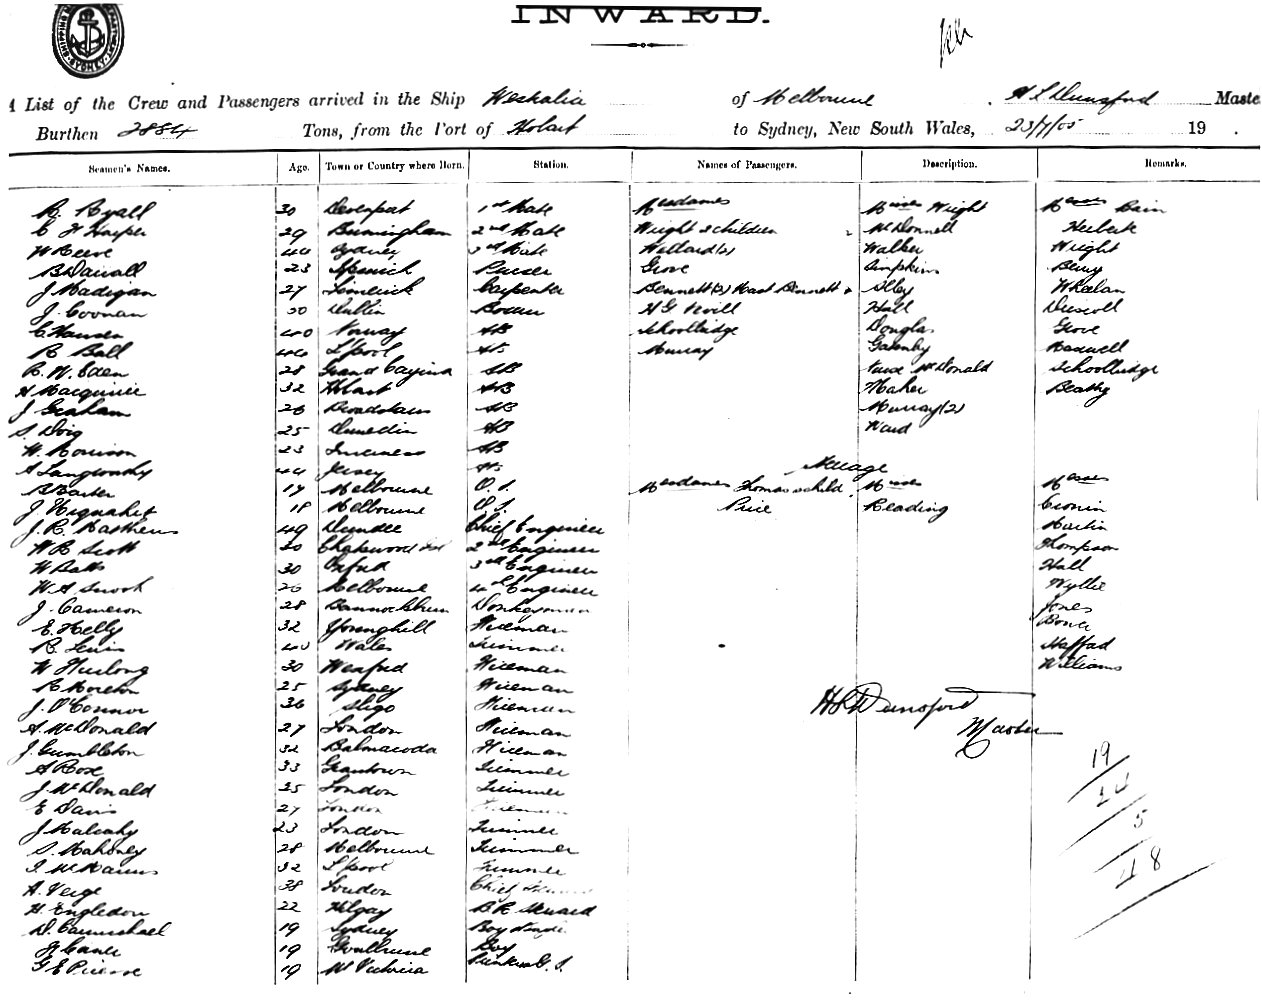 INWARD.
A List of the Crew and Passengers arrived in the Ship Weskalia of Melbourne . H L Dunsford Maste
Burthen 2884 Tons, from the Port of Hobart to Sydney, New South Wales, 23/7/05 19 .
Seamen's Names. Age. Town or Country where Born. Station. Names of Passengers. Description. Remarks.
R. Ryall 30 Devonport 1st Mate Mesdames Misses Wright Messrs Bain
C H Harper 29 Birmingham 2nd Mate Wright & children McDonnell Herbert
W Reeve 44 Sydney 3rd Mate Wellard (2) Walker Wright
B Darvall 23 Ipswich Purser Grove Simpkins Berry
J Madigan 27 Limerick Carpenter Bennett (2) Mast Bennett Alley Whelan
J. Coonan 30 Dublin Bosun H G Nevill Hall Driscoll
C Hansen 40 Norway AB Schoolbridge Douglas Grove
R Ball 44 L'pool AB Murray Gatenby Radwell
R. W. Eden 28 Grand Cayina AB McDonald Schoolbridge
H Macquinie 32 Hobart AB Maher Beathy
J Graham 26 Broadstairs AB Murray (2)
S. Doig 25 Dunedin AB Ward
W. Morrison 23 Inverness AB
A Langworthy 44 Jersey AB Steerage
B Barber 17 Melbourne O.S. Mesdames Thomas & child Misses Messrs
J 18 Melbourne O.S. Price Reading Cronin
J. R. Matthews 49 Dundee Chief Engineer Martin
W R Scott 30 2nd Engineer Thompson
W Batts 30 Oxford 3rd Engineer Hall
W. A. Snook 26 Melbourne 4th Engineer Wyllie
J. Cameron 28 Bannockburn Donkeyman Jones
E. Kelly 32 Younghill Fireman
R. Lewis 40 Wales Trimmer Stafford
W Furlong 30 Wexford Fireman Williams
R Moreton 25 Sydney Fireman
J. O'Connor 36 Sligo Fireman H L Dunsford
A. McDonald 27 London Fireman Master
J. Gumbleton 32 Balmacoda Fireman 19
A Rose 33 Grantown Trimmer 24
J. McDonald 25 London Trimmer 5
E Davis 27 London Fireman 48
J Mulcahy 23 London Trimmer
S. Mahoney 28 Melbourne Trimmer
J. McManus 32 L'pool Trimmer
A. Verge 38 London Chief
H. Engledon 22 Hilgay B.R. Steward
D. Carmichael 19 Sydney Boy
19 Goulburne Boy
G E Pierce 19 Mt Victoria